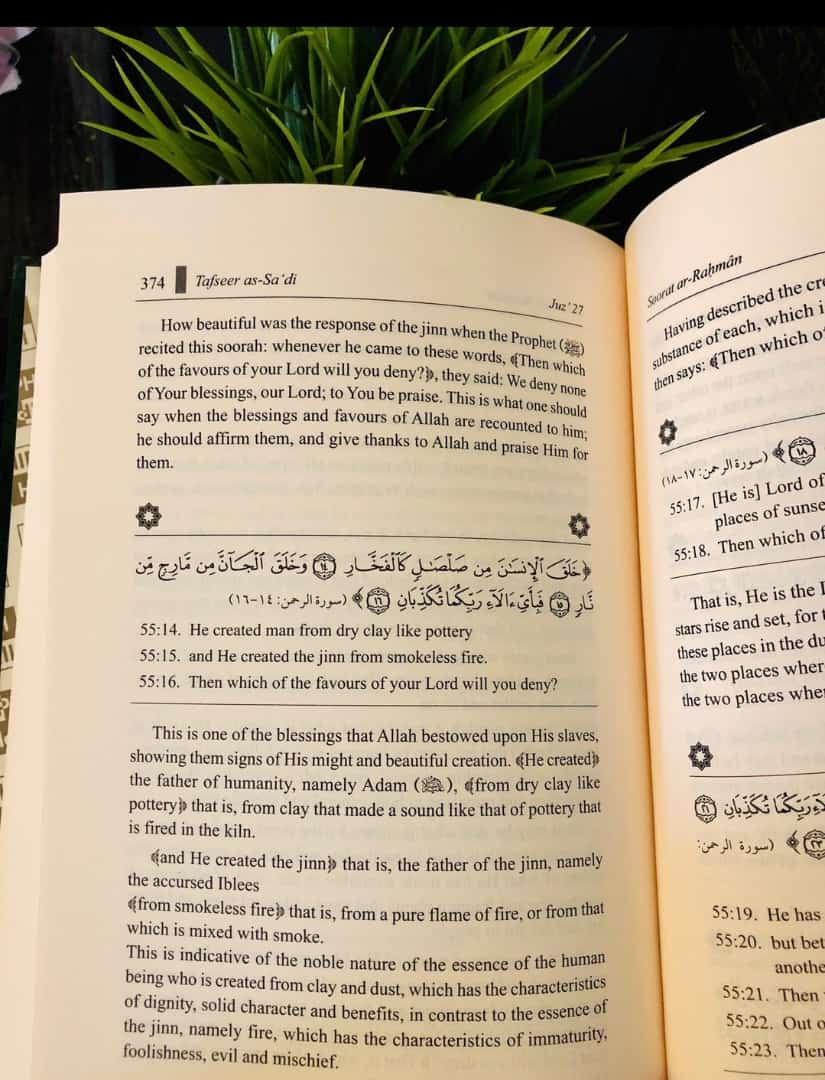 374 Tafseer as-Sa'di
Juz' 27
How beautiful was the response of the jinn when the Prophet (ﷺ)
recited this soorah: whenever he came to these words, ﴾Then which
of the favours of your Lord will you deny?﴿, they said: We deny none
of Your blessings, our Lord; to You be praise. This is what one should
say when the blessings and favours of Allah are recounted to him;
he should affirm them, and give thanks to Allah and praise Him for
them.
﴿خَلَقَ ٱلْإِنسَٰنَ مِن صَلْصَٰلٍ كَٱلْفَخَّارِ ١٤ وَخَلَقَ ٱلْجَآنَّ مِن مَّارِجٍ مِّن
نَّارٍ ١٥ فَبِأَيِّ ءَالَآءِ رَبِّكُمَا تُكَذِّبَانِ ١٦﴾ (سورة الرحمن: ١٤-١٦)
55:14. He created man from dry clay like pottery
55:15. and He created the jinn from smokeless fire.
55:16. Then which of the favours of your Lord will you deny?
This is one of the blessings that Allah bestowed upon His slaves,
showing them signs of His might and beautiful creation. ﴾He created﴿
the father of humanity, namely Adam (), ﴾from dry clay like
pottery﴿ that is, from clay that made a sound like that of pottery that
is fired in the kiln.
﴾and He created the jinn﴿ that is, the father of the jinn, namely
the accursed Iblees
﴾from smokeless fire﴿ that is, from a pure flame of fire, or from that
which is mixed with smoke.
This is indicative of the noble nature of the essence of the human
being who is created from clay and dust, which has the characteristics
of dignity, solid character and benefits, in contrast to the essence of
the jinn, namely fire, which has the characteristics of immaturity,
foolishness, evil and mischief.
Soorat ar-Raḥmân
Having described the
substance of each, which
then says: ﴾Then which
١٨﴾ (سورة الرحمن: ١٧-١٨)
55:17. [He is] Lord of
places of
55:18. Then which of
That is, He is the
stars rise and set, for
these places in the
the two places
the two places
رَبِّكُمَا تُكَذِّبَانِ ٢١
٢٣﴾ (سورة الرحمن:
55:19. He has
55:20. but
55:21. Then
55:22. Out
55:23. Then